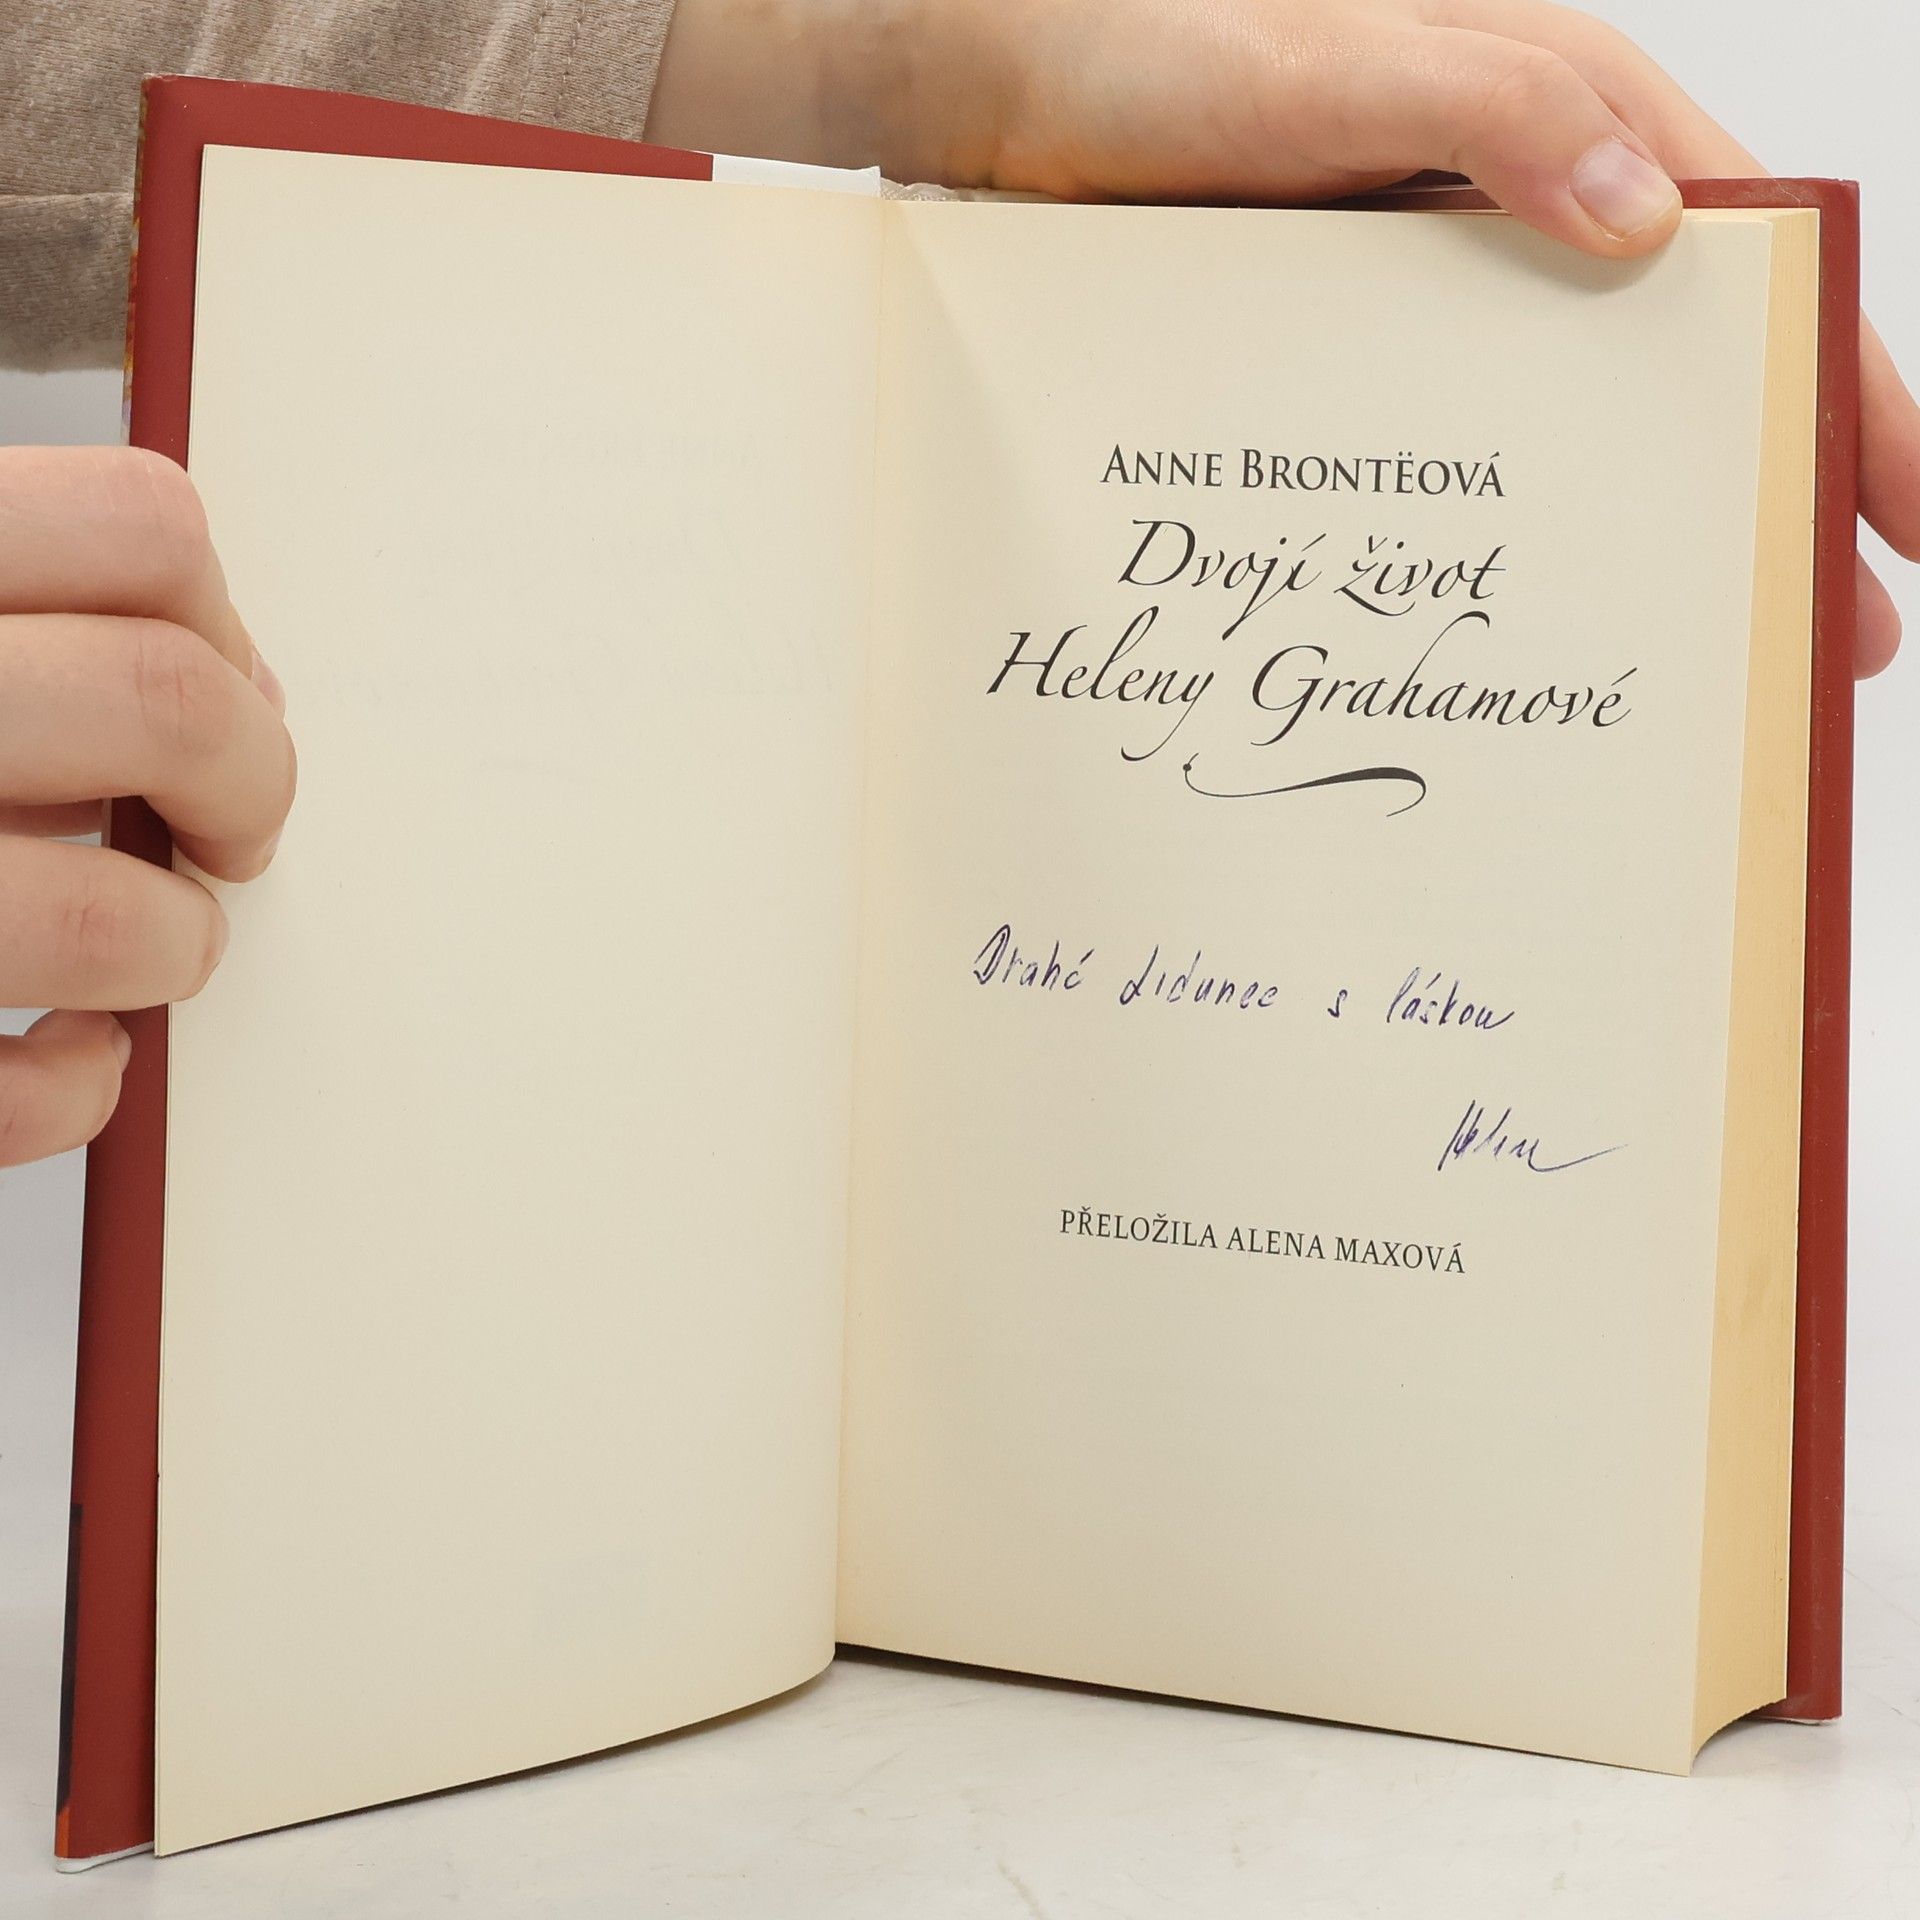 ANNE BRONTËOVÁ
Dvojí život
Heleny Grahamové
Drahé Lidunce s láskou
PŘELOŽILA ALENA MAXOVÁ